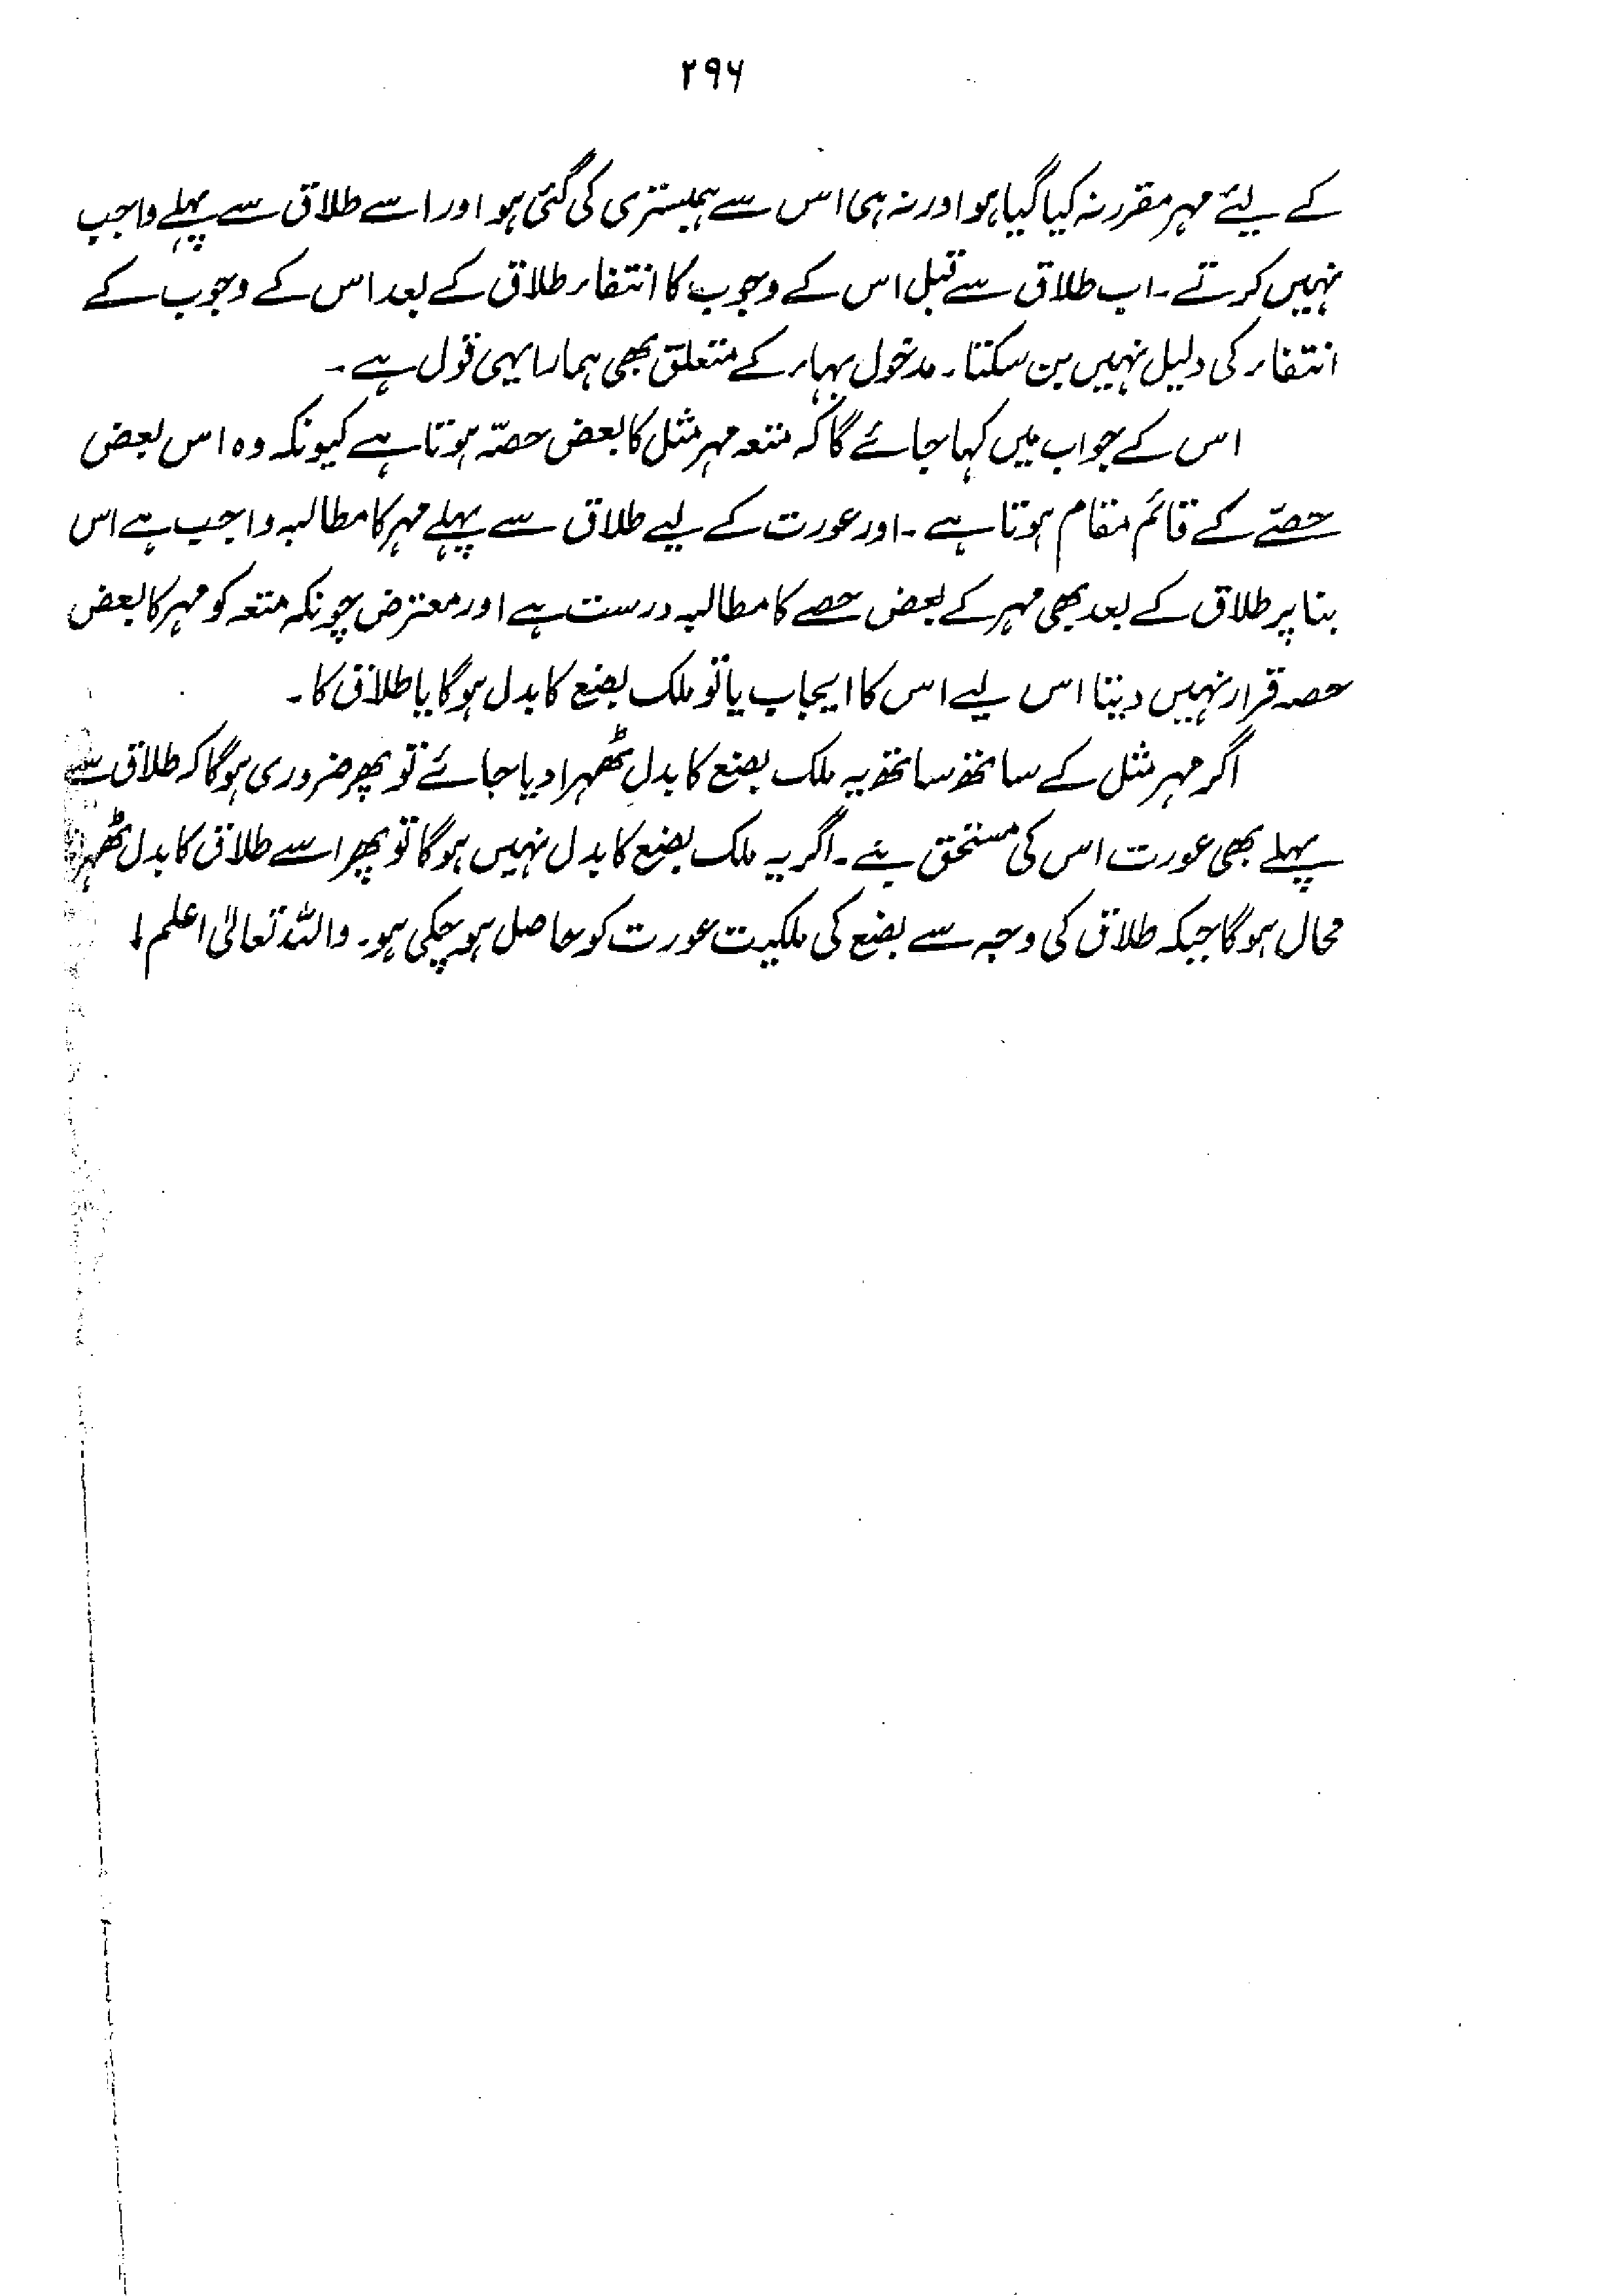 ۲۹۶
کے لیئے مہر مقرر نہ کیا گیا ہو اور نہ ہی اس سے ہمبستری کی گئی ہو اور اسے طلاق سے پہلے واجب
نہیں کرتے۔ اب طلاق سے قبل اس کے وجوب کا انتفاء طلاق کے بعد اس کے وجوب کے
انتفاء کی دلیل نہیں بن سکتا۔ مدخول بہا، کے متعلق بھی ہمارا یہی قول ہے۔
اس کے جواب میں کہا جائے گا کہ متعہ مہر مثل کا بعض حصّہ ہوتا ہے کیونکہ وہ اس بعض
حصّے کے قائم مقام ہوتا ہے۔ اور عورت کے لیے طلاق سے پہلے مہر کا مطالبہ واجب ہے اس
بنا پر طلاق کے بعد بھی مہر کے بعض حصے کا مطالبہ درست ہے اور معترض چونکہ متعہ کو مہر کا بعض
حصہ قرار نہیں دیتا اس لیے اس کا ایجاب یا تو ملک بضع کا بدل ہوگا یا طلاق کا۔
اگر مہر مثل کے ساتھ ساتھ یہ ملک بضع کا بدل ٹھہرا دیا جائے تو پھر ضروری ہوگا کہ طلاق سے
پہلے بھی عورت اس کی مستحق بنے۔ اگر یہ ملک بضع کا بدل نہیں ہوگا تو پھر اسے طلاق کا بدل ٹھہرانا
محال ہوگا جبکہ طلاق کی وجہ سے بضع کی ملکیت عورت کو حاصل ہو چکی ہو۔ واللہ تعالیٰ اعلم